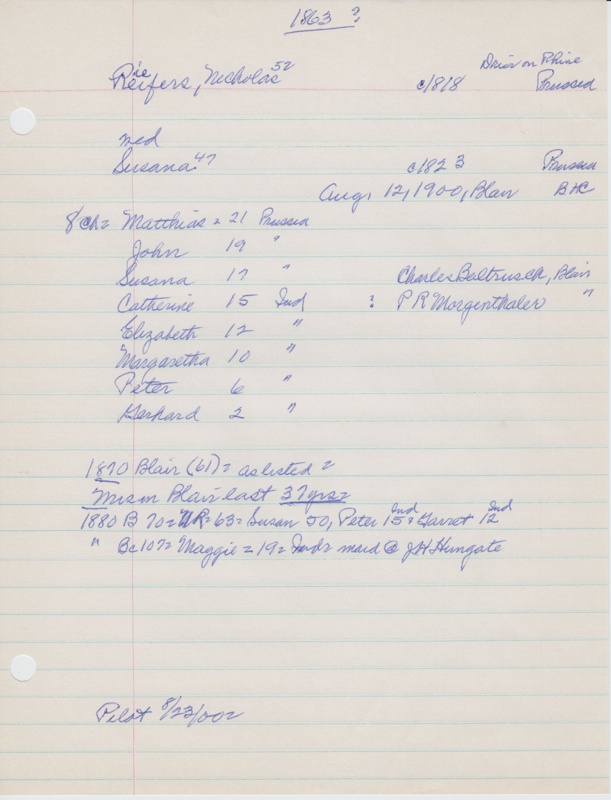 1863 ?
on Rhine
ie
Reifers, Nicholas 52 c/818 Prussia
med
Susana 47 c/823 Prussia
Aug. 12, 1900, Blair BHC
8 ch = Matthias = 21 Prussia
John 19 "
Susana 17 " Charles Baltrusch, Blair
Catherine 15 Ind : P R Morgenthaler "
Elizabeth 12 "
Margaretha 10 "
Peter 6 "
Gerhard 2 "
1870 Blair (61) = as listed =
Blair last 37 yrs =
1880 B 70 = NR = 63 = Susan 50, Peter 15 Ind = Garret 12 Ind
" Bc 107 = Maggie = 19 = Ind = maid @ J H Hungate
Pilot 8/23/002